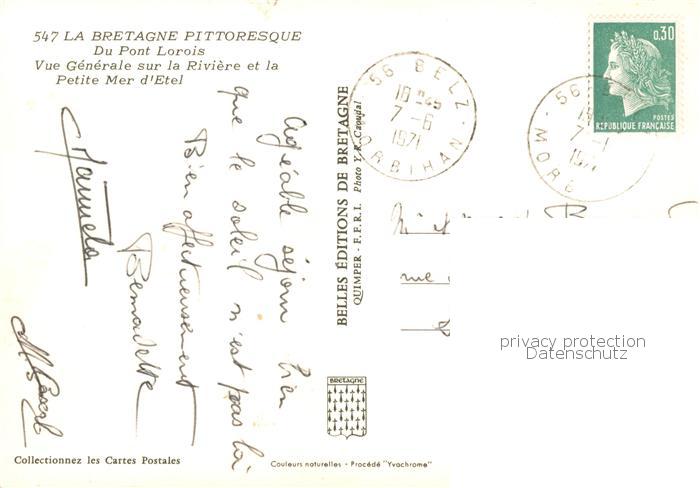 547 LA BRETAGNE PITTORESQUE
Du Pont Lorois
Vue Générale sur la Rivière et la
Petite Mer d'Etel
Agréable séjour bien
que le soleil n'est pas là
Bien affectueusement
Bernadette
Manuela
BELLES ÉDITIONS DE BRETAGNE
QUIMPER - F.F.R.I. Photo Y.-R. Caoudal
56 BELZ
10 H45
7-6
1971
MORBIHAN
56
7-
1971
MORB
0,30
POSTES
RÉPUBLIQUE FRANÇAISE
M et
rue
privacy protection
Datenschutz
BRETAGNE
Collectionnez les Cartes Postales
Couleurs naturelles - Procédé "Yvochrome"